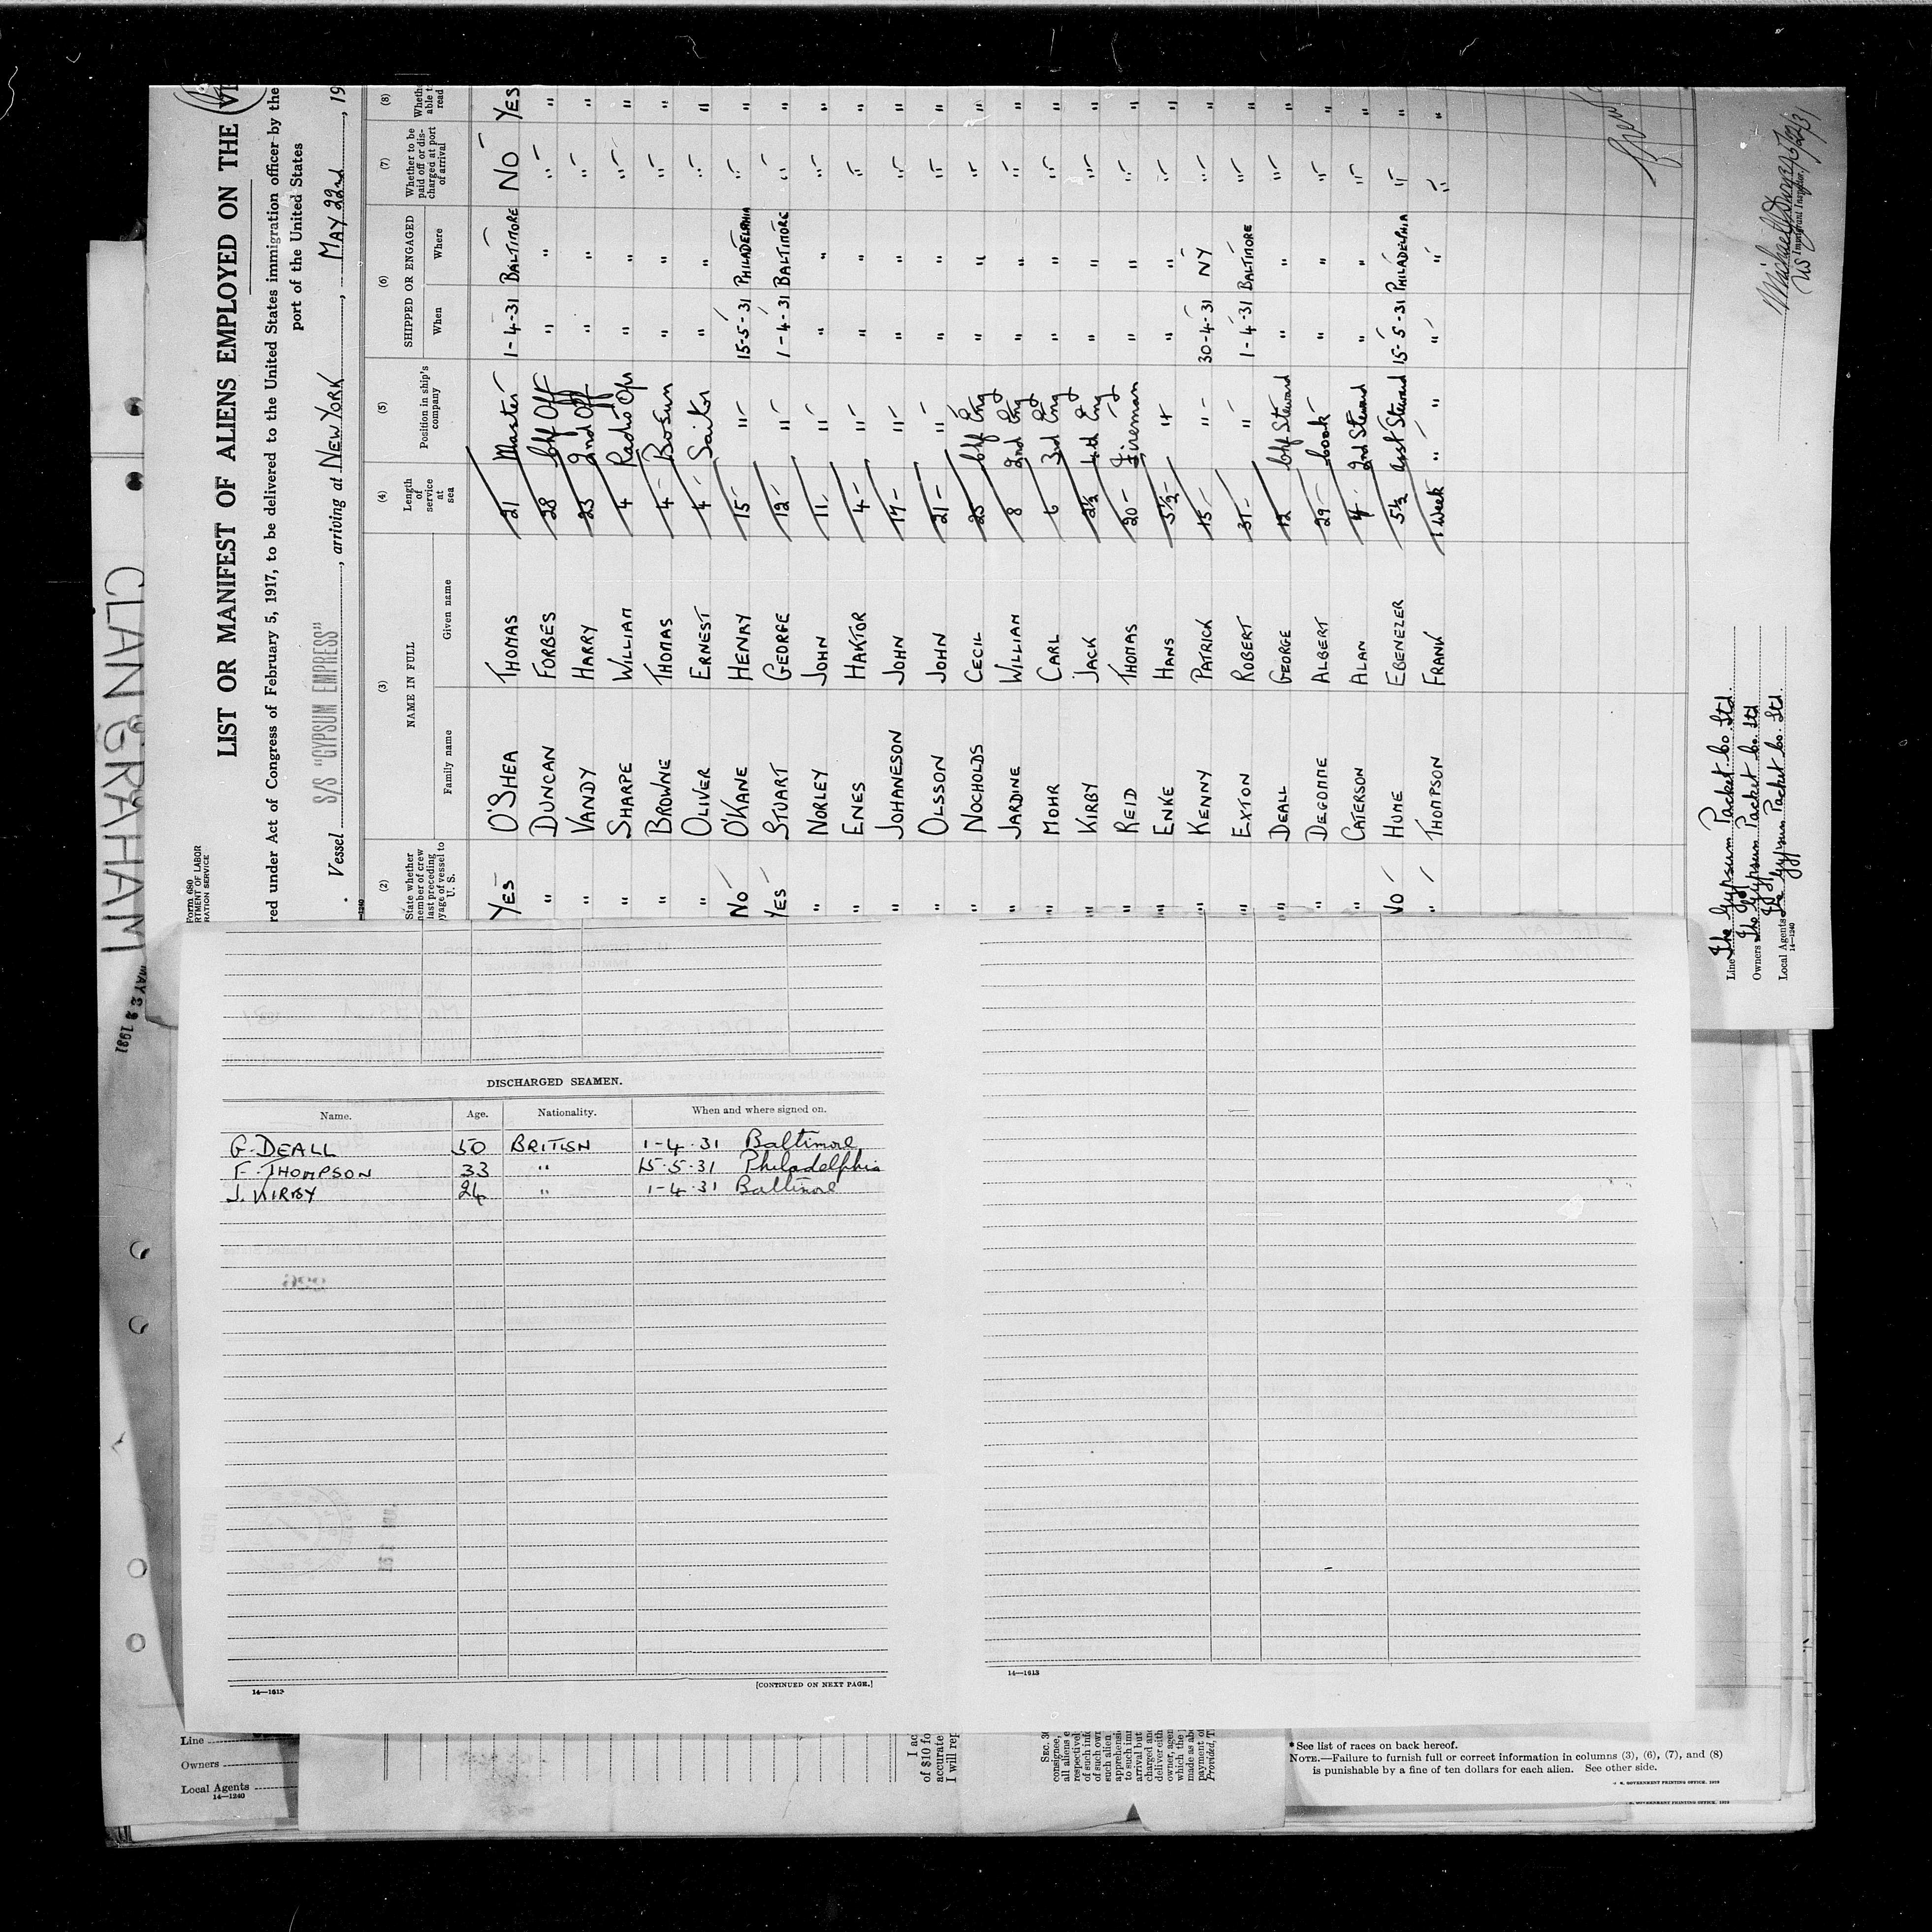 CLAN GRAHAM
MAY 22 1931
Form 680
RTMENT OF LABOR
RATION SERVICE
LIST OR MANIFEST OF ALIENS EMPLOYED ON THE
red under Act of Congress of February 5, 1917, to be delivered to the United States immigration officer by the
port of the United States
Vessel S/S "GYPSUM EMPRESS", arriving at NEW YORK, MAY 22nd, 19
(2) (3) (4) (5) (6) (7) (8)
State whether member of crew last preceding voyage of vessel to U. S.
NAME IN FULL
Family name Given name
Length of service at sea
Position in ship's company
SHIPPED OR ENGAGED
When Where
Whether to be paid off or discharged at port of arrival
Whether able to read
YES O'SHEA THOMAS 21 Master 1-4-31 BALTIMORE NO YES
" DUNCAN FORBES 28 Chf Off " " " "
" VANDY HARRY 23 2nd Off " " " "
" SHARPE WILLIAM 4 Radio Opr " " " "
" BROWNE THOMAS 4 Bosun " " " "
" OLIVER ERNEST 4 Sailor " " " "
NO O'KANE HENRY 15 " 15-5-31 PHILADELPHIA " "
YES STUART GEORFE 12 " 1-4-31 BALTIMORE " "
" NORLEY JOHN 11 " " " " "
" ENES HAKTOR 4 " " " " "
" JOHANESON JOHN 17 " " " " "
" OLSSON JOHN 21 " " " " "
" NOCHOLDS CECIL 25 Chf Eng " " " "
" JARDINE WILLIAM 8 2nd Eng " " " "
" MOHR CARL 6 3rd Eng " " " "
" KIRBY JACK 2½ 4th Eng " " " "
" REID THOMAS 20 Fireman " " " "
" ENKE HANS 5½ " " " " "
" KENNY PATRICK 15 " 30-4-31 NY " "
" EXTON ROBERT 31 " 1-4-31 BALTIMORE " "
" DEALL GEORGE 12 Chf Steward " " " "
" DEGOMME ALBERT 29 Cook " " " "
" CATERSON ALAN 4 2nd Steward " " " "
NO HUME EBENEZER 5½ Asst Steward 15-5-31 PHILADELPHIA " "
" THOMPSON FRANK 1 Week " " " " "
Line The Gypsum Packet Co. Ltd.
Owners The Gypsum Packet Co. Ltd
Local Agents The Gypsum Packet Co. Ltd.
14—1240
US Immigrant Inspector
DISCHARGED SEAMEN.
Name. Age. Nationality. When and where signed on.
G. DEALL 50 BRITISH 1-4-31 Baltimore
F. THOMPSON 33 " 15-5-31 Philadelphia
J. KIRBY 24 " 1-4-31 Baltimore
14—1613
[CONTINUED ON NEXT PAGE.]
14—1613
Line
Owners
Local Agents
14—1240
I ac
of $10 fo
accurate
I will rep
SEC. 36
consignee,
all aliens e
respectively
of such info
of such own
such alien
apprehensio
to such imm
arrival but
charged and
deliver eith
owner, agen
which the
made as abo
payment of
Provided, T
*See list of races on back hereof.
NOTE.—Failure to furnish full or correct information in columns (3), (6), (7), and (8)
is punishable by a fine of ten dollars for each alien. See other side.